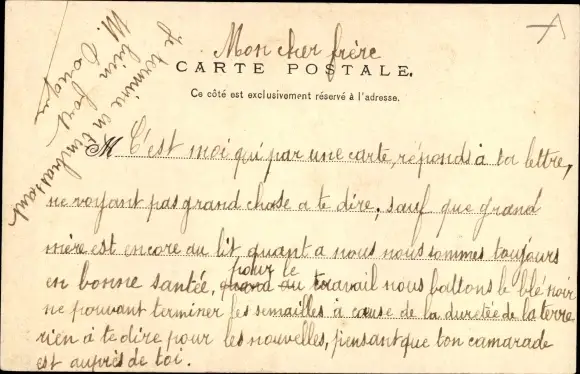 Mon cher frère
CARTE POSTALE.
Ce côté est exclusivement réservé à l'adresse.
M C'est moi qui par une carte, réponds à ta lettre,
ne voyant pas grand chose a te dire, sauf que grand
mère est encore au lit quant a nous nous sommes toujours
en bonne santée, pour le travail nous battons le blé noir
ne pouvant terminer les semailles à cause de la duretée de la terre
rien à te dire pour les nouvelles, pensant que ton camarade
est auprès de toi.
je termine en t'embrassant
bien fort